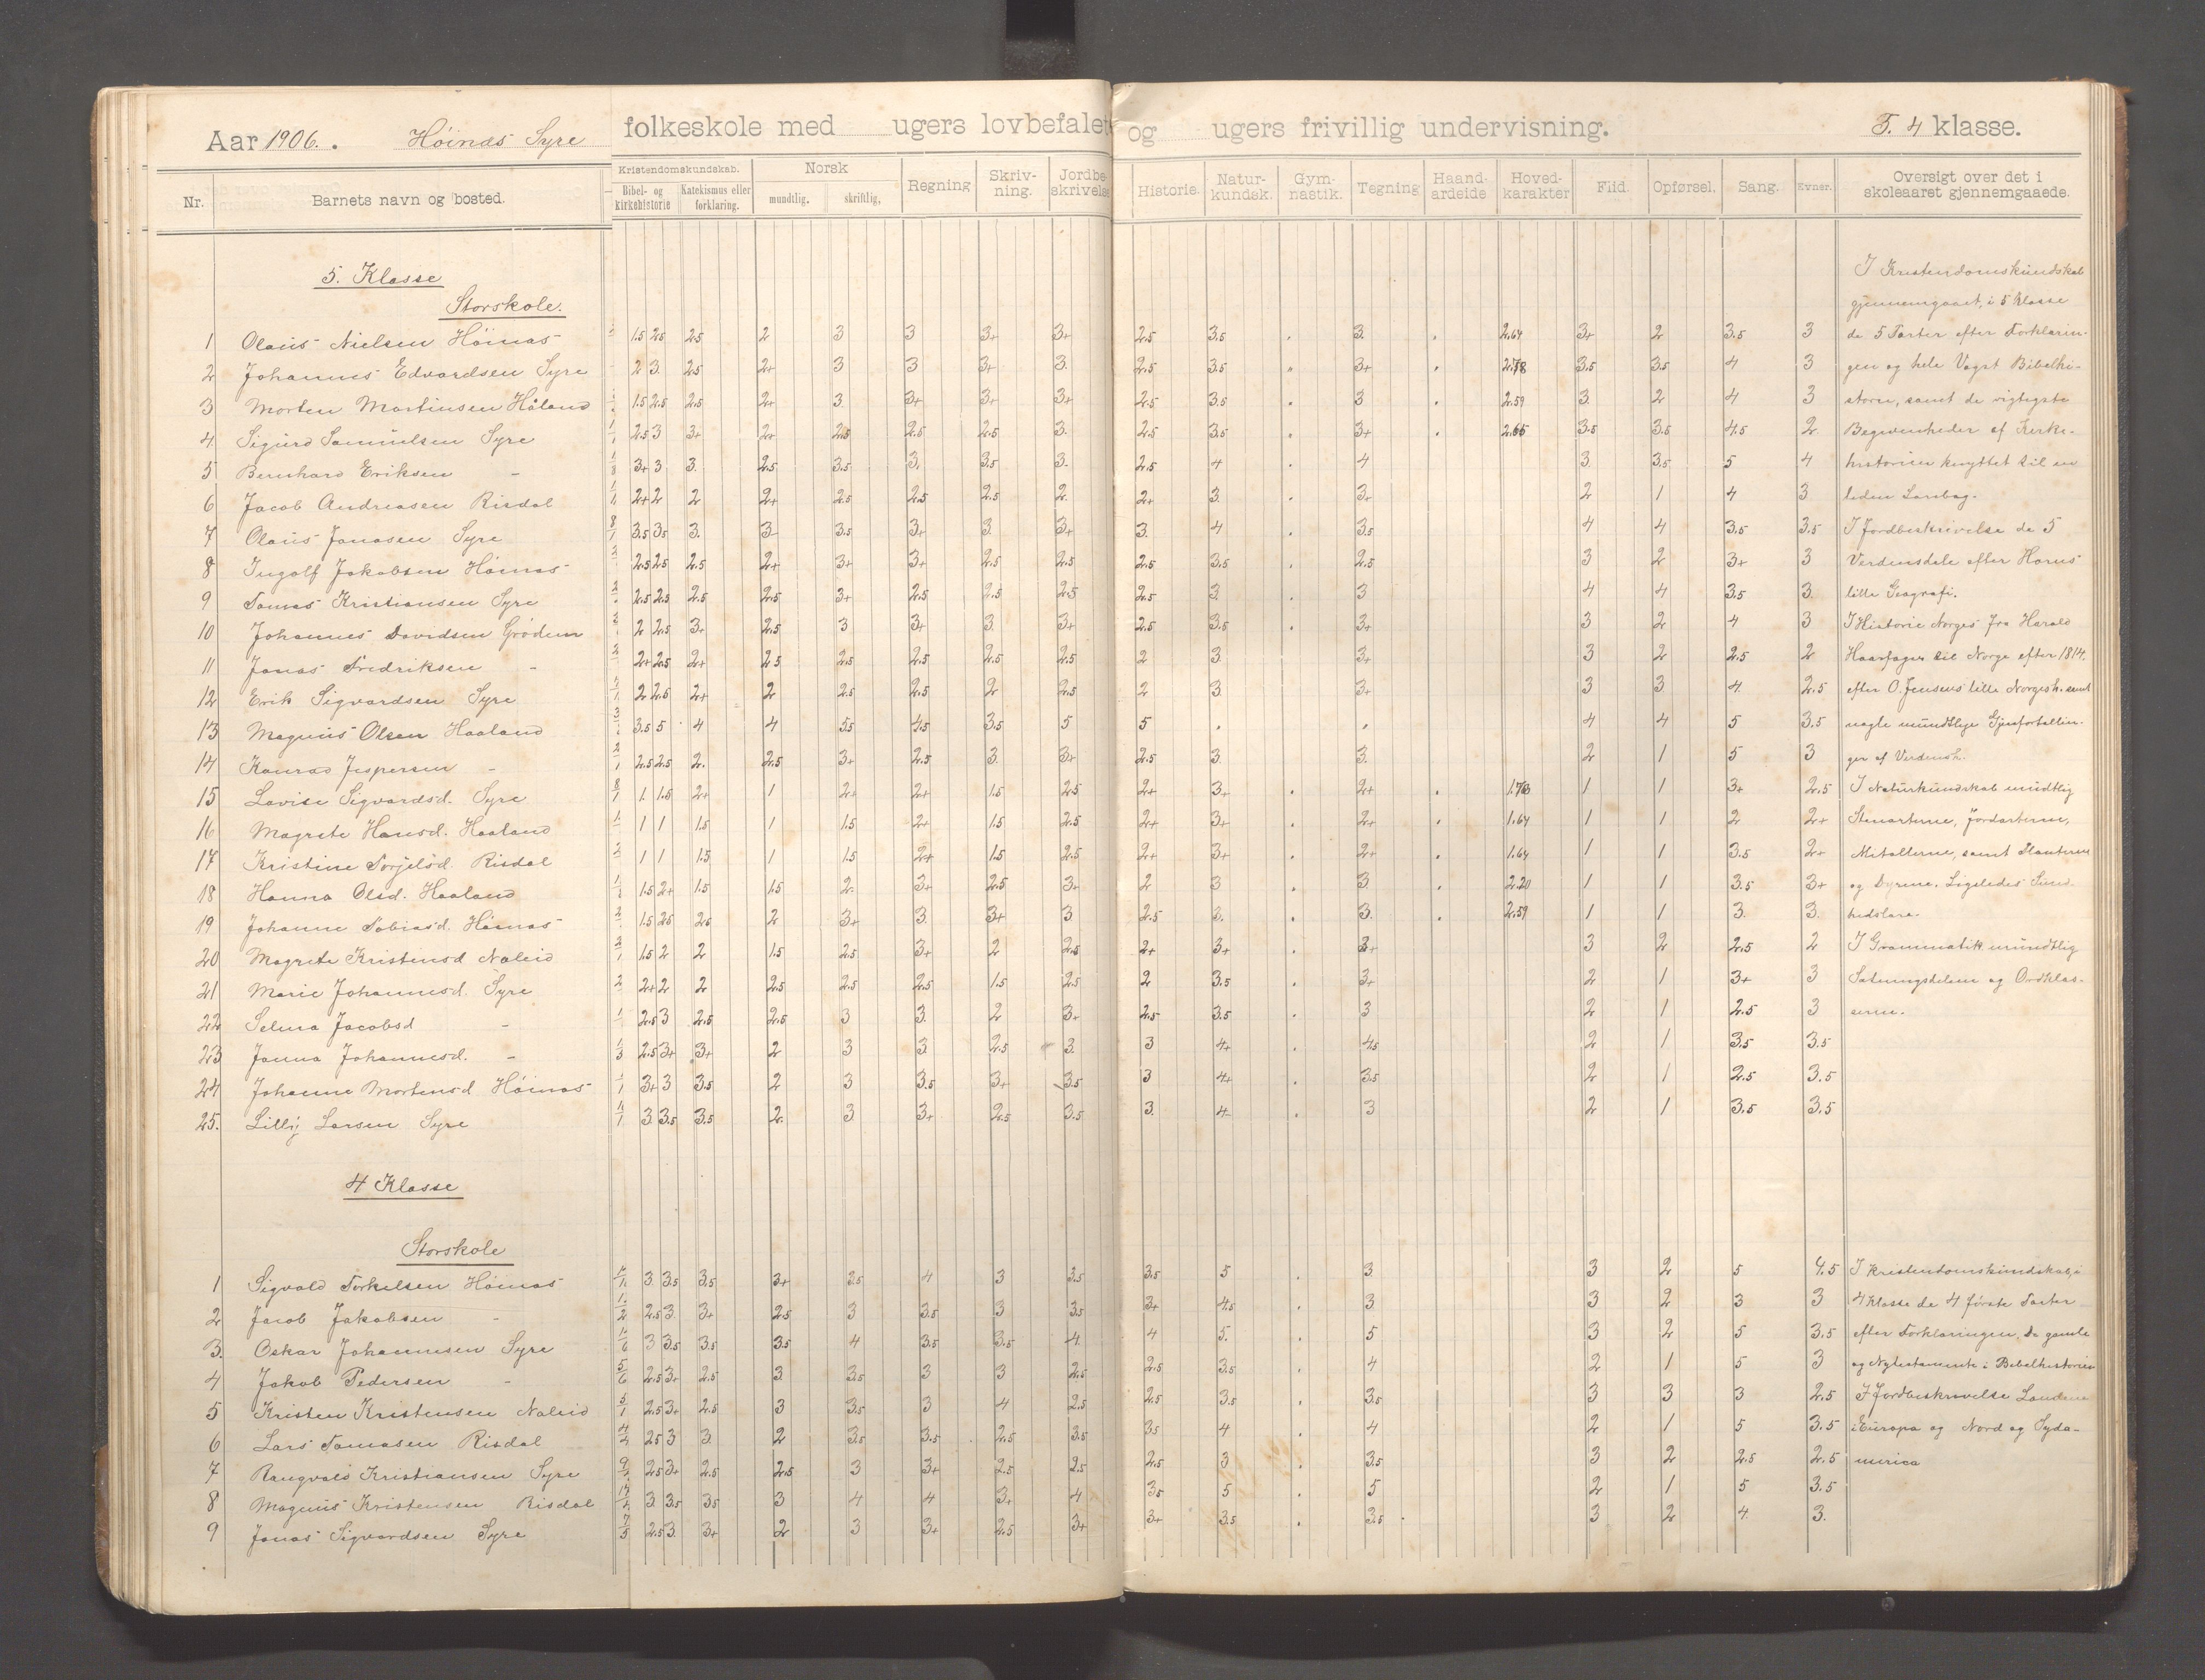 Aar 1906. Höinæs Syre folkeskole med ugers lovbefalet og ugers frivillig undervisning. 5. 4 klasse.
Nr. Barnets navn og bosted. Kristendomskundskab. Bibel- og kirkehistorie Katekismus eller forklaring. Norsk mundtlig, skriftlig, Regning Skriv-ning. Jordbe skrivelse Historie. Natur-kundsk. Gym-nastik. Tegning Haand-arbeide Hoved-karakter Flid. Opførsel. Sang. Evner. Oversigt over det i skoleaaret gjennemgaaede.
5. Klasse
I Kristendomskundskab
Storskole.
gjennemgaaet, i 5 klasse
1 Olaüs Nielsen Höinæs 1.5 2.5 2.5 2 3 3 3+ 3+ 2.5 3.5 3. 2.64 3+ 2 3.5 3 de 5 Parter efter Forklarin-
2 Johannes Edvardsen Syre 2 3. 2.5 2+ 3 3 3+ 3. 2.5 3.5 3+ 2.78 3.5 3.5 4 3 gen og hele Vogt Bibelhi-
3 Morten Martinsen Håland 1.5 2.5 2.5 2+ 3. 3+ 3+ 3+ 2.5 3.5 3 2.59 3. 2 4 3 storie, samt de vigtigste
4. Sigurd Samuelsen Syre 2.5 3 3+ 2+ 2.5 2.5 2.5 3. 2.5 3.5 3+ 2.65 3.5 3.5 4.5 2. Begivenheder af Kirke-
5 Bernhard Eriksen - 3+ 3 3. 2.5 3.5 3. 3.5 3. 2.5 4 4 3. 3.5 5 4 historien knyttet til en
6 Jacob Andreasen Risdal 2+ 2 2 2+ 2.5 2.5 2.5 2. 2+ 3. 3+ 2 1 4 3 liden Læsebog.
7 Olaüs Jonasen Syre 3.5 3.5 3. 3 3.5 3+ 3. 3+ 3. 4 3.5 4 4 3.5 3.5 I Jordbeskrivelse de 5
8 Ingolf Jakobsen Höinæs 2.5 2.5 2.5 2+ 3+ 3+ 2.5 2.5 2.5 3.5 2.5 3 2 3+ 3 Verdensdele efter Horns
9 Tomas Kristiansen Syre 2.5 2.5 2.5 2.5 3+ 2.5 2.5 2.5 2.5 3 3 4 4 3.5 3. lille Geografi.
10 Johannes Davidsen Grödem 2 2.5 3+ 2.5 3 3+ 3. 3+ 2.5 3.5 3+ 3 2 4 3 I Historie Norges fra Harald
11 Jonas Fredriksen - 2+ 2.5 2+ 2.5 2.5 2.5 2.5 2.5 2 3. 3+ 3 2 2.5 2 Haarfager til Norge efter 1814.
12 Erik Sigvardsen Syre 2 2.5 2+ 2 2.5 2.5 2 2.5 2 3. 3+ 3 3 4. 2.5 efter O. Jensens lille Norgesh. samt
13 Magnüs Olsen Haaland 3.5 5 4 4 5.5 4.5 3.5 5 5 4 4 5 3.5 nogle mündtlige Gjenfortællin-
14 Konrad Jespersen - 2.5 2.5 2. 2.5 3+ 2.5 3. 3+ 2.5 3. 3. 2 1 5 3 ger af Verdensh.
15 Lovise Sigvardsd. Syre 1. 1.5 2+ 1 2+ 2+ 1.5 2.5 2+ 3+ 2+ 1.73 1 1 3+ 2.5 I Naturkundskab mündtlig
16 Magrete Hansd. Haaland 1 1 1.5 1 1.5 2+ 1.5 2.5 2+ 3+ 2+ 1.64 1 1 2 2+ Stenarterne, Jordarterne,
17 Kristine Torjelsd. Risdal 1 1 1.5 1 1.5 2+ 1.5 2.5 2+ 3+ 2+ 1.64 1 1 3.5 2+ Metallerne, samt Planterne
18 Hanna Olsd. Haaland 1.5 2+ 1.5 1.5 2. 3+ 2.5 3+ 2 3 3. 2.20 1 1 3.5 3+ og Dyrene. Ligeledes Sund-
19 Johanne Tobiasd. Höinæs 1.5 2.5 2.5 2 3+ 3. 3+ 3 2.5 3. 3. 2.59 1 1 3. 3. hedslære.
20 Magrete Kristensd Nåleid 1.5 2 2 1.5 2.5 3+ 2 2.5 2+ 3+ 3+ 3 2 2.5 2 I Grammatik mündtlig
21 Marie Johannesd. Syre 2+ 2 2 2.5 2.5 2.5 1.5 2.5 2 3.5 3+ 2 1 3+ 3 Sætningsdelene og Ordklas-
22 Selma Jacobsd - 2.5 3 2.5 2.5 3 3. 2 3+ 2.5 3.5 3 2 1 2.5 3 serne.
23 Janna Johannesd. - 2.5 3+ 3+ 2 3 3. 2.5 3. 3 4+ 4.5 2 1 3.5 3.5
24 Johanne Mortensd Höinæs 3+ 3 3.5 2 3 3.5 3+ 3.5 3 4+ 3.5 2 1 2.5 3.5
25. Lilly Larsen Syre 3. 3.5 3.5 2. 3 3+ 2.5 3.5 3. 4 3 2 1 3.5 3.5
4 Klasse
Storskole
1 Sigvald Torkelsen Höinæs 3. 3.5 3.5 3+ 2.5 4 3 3.5 3.5 5 3. 3 2 5 4.5 I kristendomskündskab, i
2 Jacob Jakobsen - 2.5 3. 3+ 2.5 3 3.5 3 3.5 3+ 4.5 3 3 2 3 3 4 klasse de 4 förste Parter
3. Oskar Johannesen Syre 3 3.5 3.5 3.5 4 3.5 3.5 4. 4 5. 5 3 2 5 3.5 efter Forklaringen. De gamle
4 Jakob Pedersen - 2.5 3+ 2.5 3 3.5 3 3 2.5 2.5 3.5 4 2 1 5 3 og Nytestamente i Bibelhistorien
5 Kristen Kristensen Naleid 2.5 3+ 2.5 3 3.5 3 4 2.5 2.5 3.5 3.5 3 3 3 2.5 I Jordbeskrivelse Landene
6 Lars Tomasen Risdal 2.5 3 3. 2 3.5 3.5 2.5 3.5 3.5 4 4 2 1 5 3.5 i Europa og Nord og Syda-
7 Rangvald Kristiansen Syre 2.5 3+ 2.5 2.5 3 3+ 2.5 2.5 2.5 3 3.5 3 2 2.5 2.5 merica
8 Magnüs Kristensen Risdal 3. 3.5 3.5 3 4 4 3+ 4 3.5 5 5 2 1 5 3.5
9 Jonas Sigvardsen Syre 2.5 3. 3+ 2 3 3+ 2.5 3+ 3+ 3.5 3.5 3 2 4. 3.